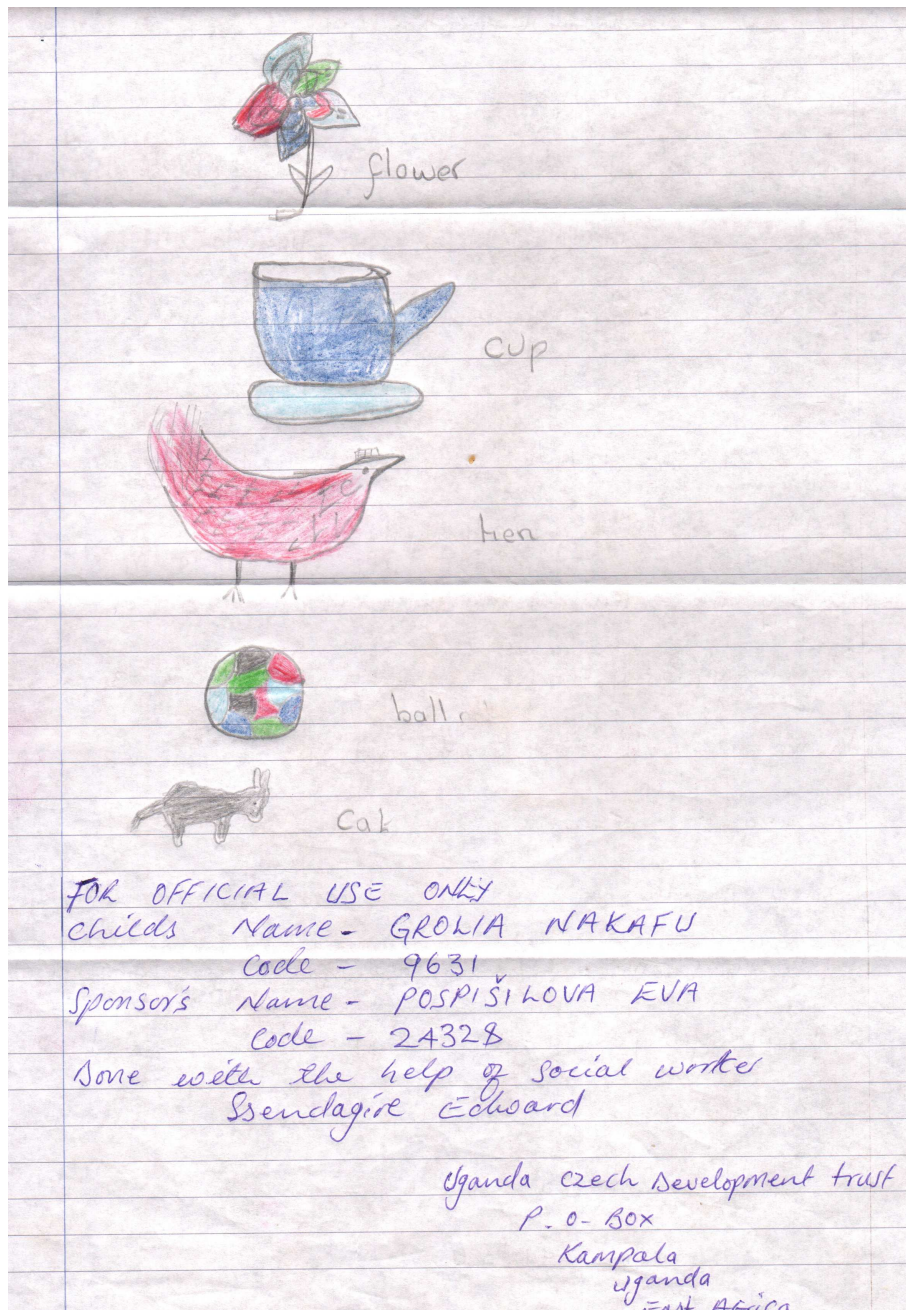 flower
cup
hen
ball
cat
FOR OFFICIAL USE ONLY
Childs Name - GROLIA NAKAFU
Code - 9631
Sponsor's Name - POSPIŠILOVA EVA
Code - 24328
Done with the help of social worker
Ssendagire Edward
Uganda Czech Development trust
P.O-BOX
Kampala
Uganda
East Africa